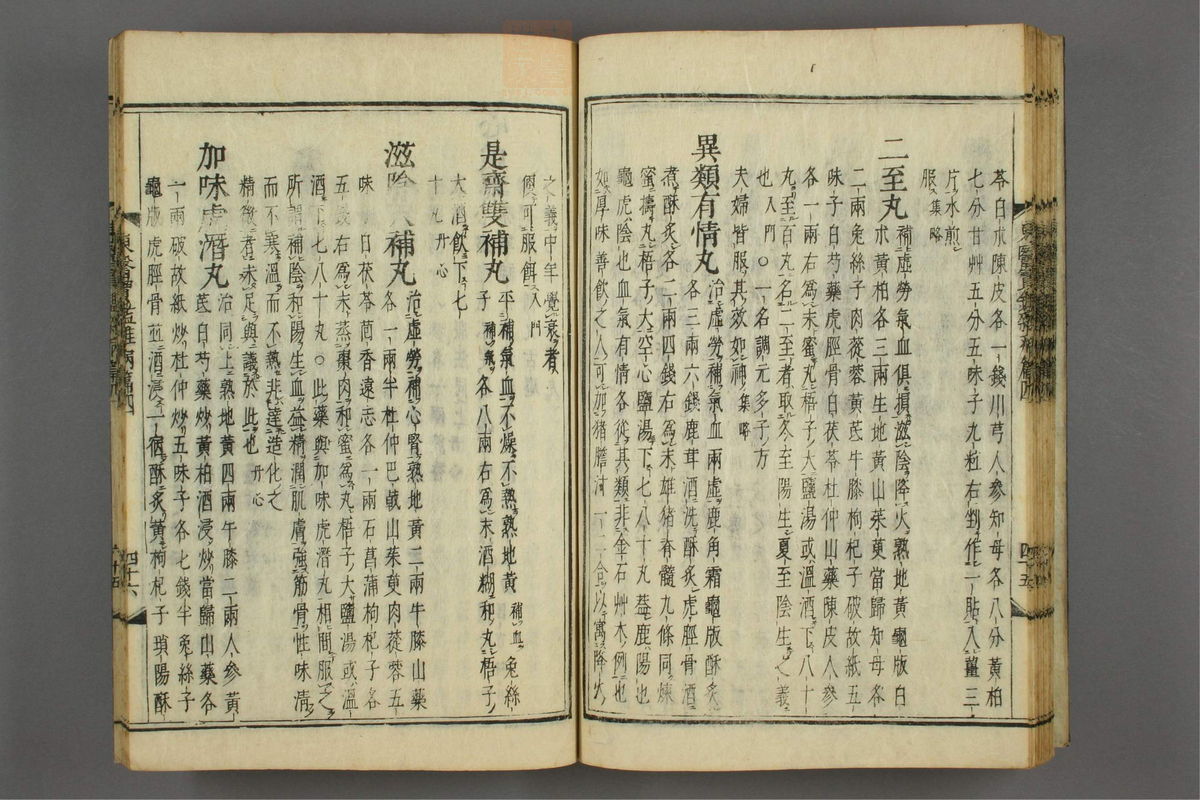 芩白朮陳皮各一錢川芎人參知母各八分黃柏
七分甘艸五分五味子九粒右剉作一貼入薑三
片水煎
服集略
二至丸補虛勞氣血俱損滋陰降火熟地黃龜版白
朮黃柏各三兩生地黃山茱萸當歸知母各
二兩兔絲子肉蓯蓉黃芪牛膝枸杞子破故紙五
味子白芍藥虎脛骨白茯苓杜仲山藥陳皮人參
各一兩右爲末蜜丸梧子大鹽湯或溫酒下八十
丸至百丸名二至者取冬至陽生夏至陰生之義
也入門〇一名調元多子方
夫婦皆服其效如神集略
異類有情丸治虛勞補氣血兩虛鹿角霜龜版酥炙
各三兩六錢鹿茸酒洗酥炙虎脛骨酒
煮酥炙各二兩四錢右爲末雄猪脊髓九條同煉
蜜擣丸梧子大空心鹽湯下七八十丸盖鹿陽也
龜虎陰也血氣有情各從其類非金石艸木例也
如厚味善飮之人可加猪膽汁一二合以寓降火
之義中年覺衰者
便可服餌入門
是齋雙補丸平補氣血不燥不熱熟地黃補血兔絲
子補氣各八兩右爲末酒糊和丸梧子
大酒飮下七
十丸丹心
滋陰大補丸治虛勞補心腎熟地黃二兩牛膝山藥
各一兩半杜仲巴戟山茱萸肉蓯蓉五
味子白茯苓茴香遠志各一兩石菖蒲枸杞子各
五錢右爲末蒸棗肉和蜜爲丸梧子大鹽湯或溫
酒下七八十丸〇此藥與加味虎潛丸相間服之
所謂補陰和陽生血益精潤肌膚強筋骨性味淸
而不寒溫而不熱非達造化之
精微者未足與議於此也丹心
加味虎潛丸治同上熟地黃四兩牛膝二兩人參黃
芪白芍藥炒黃柏酒浸炒當歸山藥各
一兩破故紙炒杜仲炒五味子各七錢半兔絲子
龜版虎脛骨並酒浸一宿酥炙黃枸杞子瑣陽酥